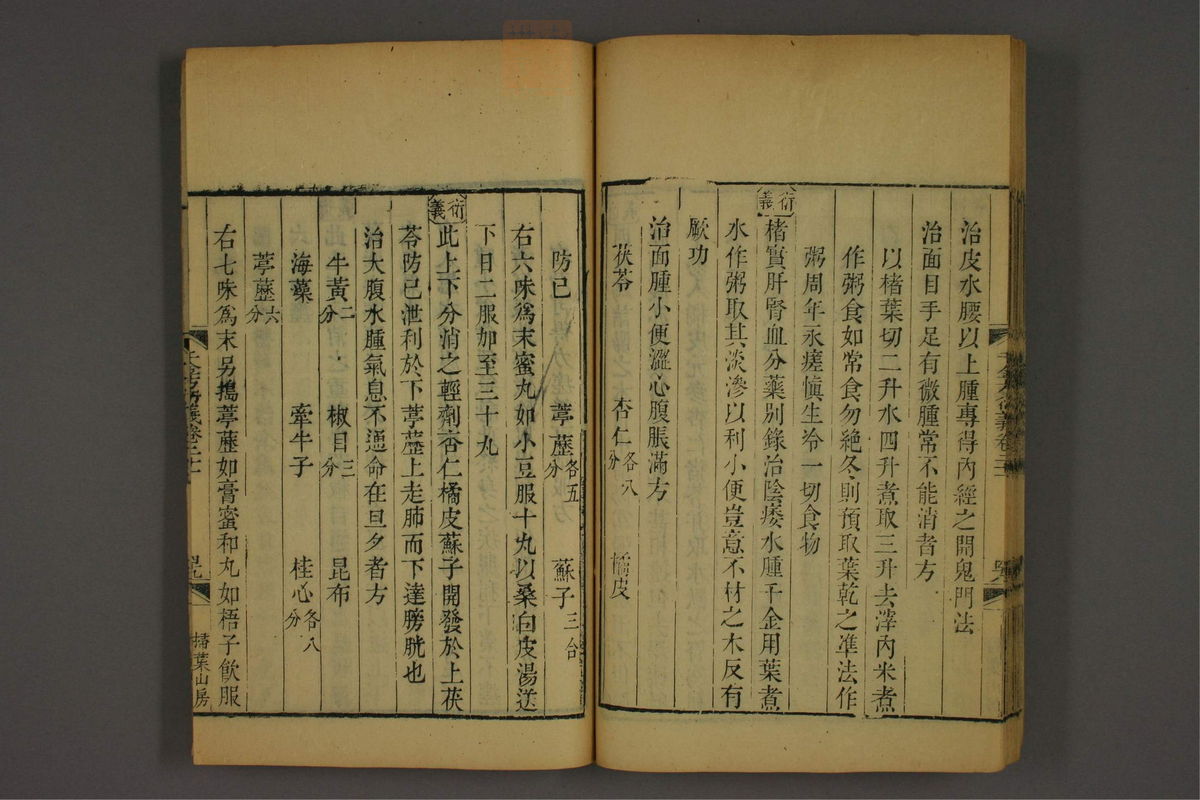 治皮水腰以上腫專得內經之開鬼門法
治面目手足有微腫常不能消者方
以楮葉切二升水四升煮取三升去滓內米煮
作粥食如常食勿絕冬則預取葉乾之準法作
粥周年永瘥愼生冷一切食物
衍義
楮實肝腎血分藥別錄治陰痿水腫千金用葉煮
水作粥取其淡滲以利小便豈意不材之木反有
厥功
治面腫小便澀心腹脹滿方
茯苓 杏仁各八分 橘皮
防已 葶藶各五分 蘇子三合
右六味爲末蜜丸如小豆服十丸以桑白皮湯送
下日二服加至三十丸
衍義
此上下分消之輕劑杏仁橘皮蘇子開發於上茯
苓防已泄利於下葶藶上走肺而下達膀胱也
治大腹水腫氣息不通命在旦夕者方
牛黃二分 椒目三分 昆布
海藻 牽牛子 桂心各八分
葶藶六分
右七味爲末另搗葶藶如膏蜜和丸如梧子飲服
千金方衍義卷二十一
掃葉山房